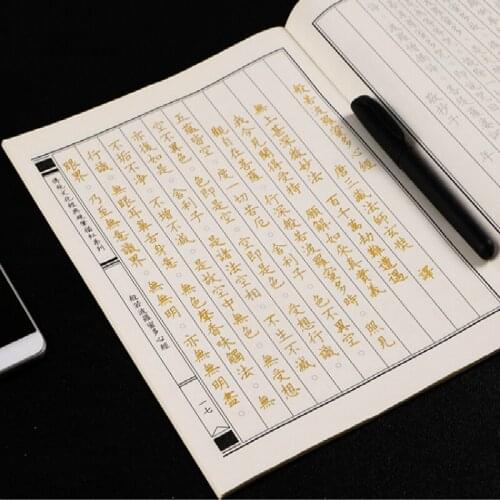 般若波羅蜜多心經 唐三藏法師玄奘 譯
無上甚深微妙法 百千萬劫難遭遇
我今見聞得受持 願解如來真實義
觀自在菩薩。行深般若波羅蜜多時。照見
五蘊皆空。度一切苦厄。舍利子。色不異空。
空不異色。色即是空。空即是色。受想行識。
亦復如是。舍利子。是諸法空相。不生不滅。
不垢不淨。不增不減。是故空中。無色。無受想
行識。無眼耳鼻舌身意。無色聲香味觸法。無
眼界。乃至無意識界。無無明。亦無無明盡。
傳統文化經典硬筆描紅系列
般若波羅蜜多心經
一七